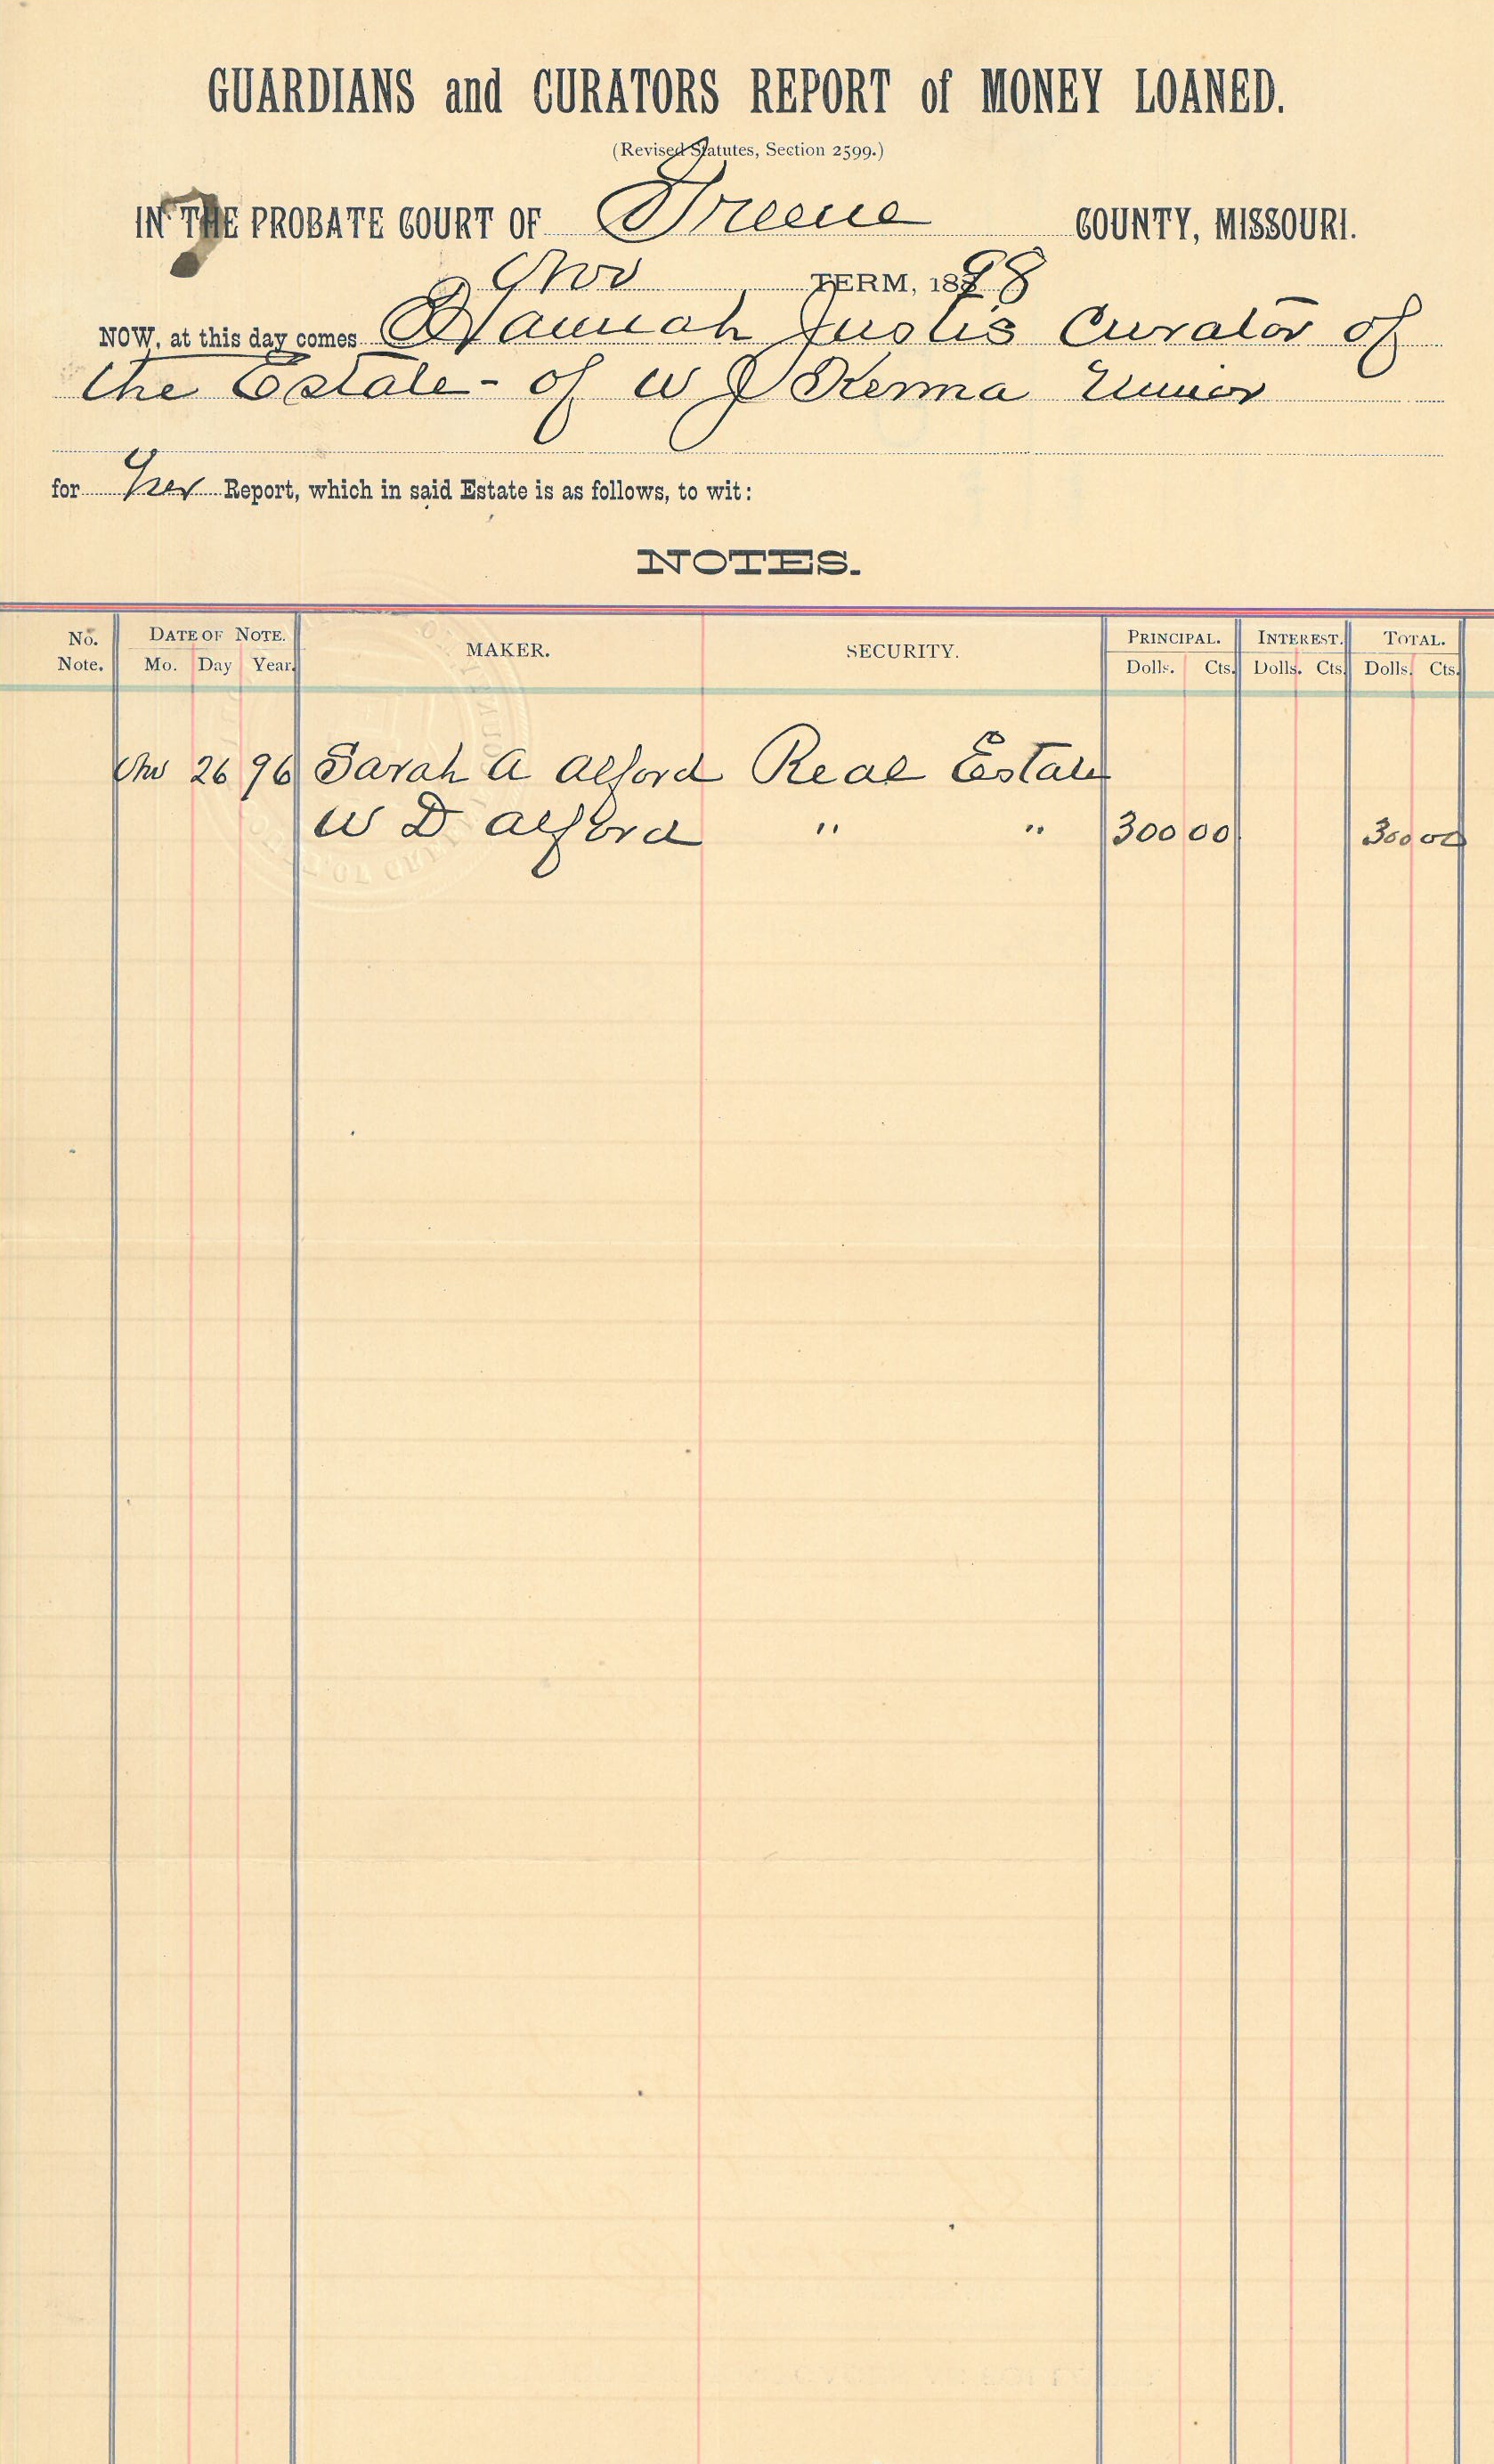 GUARDIANS and CURATORS REPORT of MONEY LOANED.
(Revised Statutes, Section 2599.)
IN THE PROBATE COURT OF Greene COUNTY, MISSOURI.
Nov TERM, 1898
NOW, at this day comes Hannah Justis Curator of
the Estate - of W J Kenna
for her Report, which in said Estate is as follows, to wit:
NOTES.
No. Note. DATE OF NOTE. Mo. Day Year. MAKER. SECURITY. PRINCIPAL. Dolls. Cts. INTEREST. Dolls. Cts. TOTAL. Dolls. Cts.
Nov 26 96 Sarah A Alford Real Estate
W D Alford " " 300 00 300 00